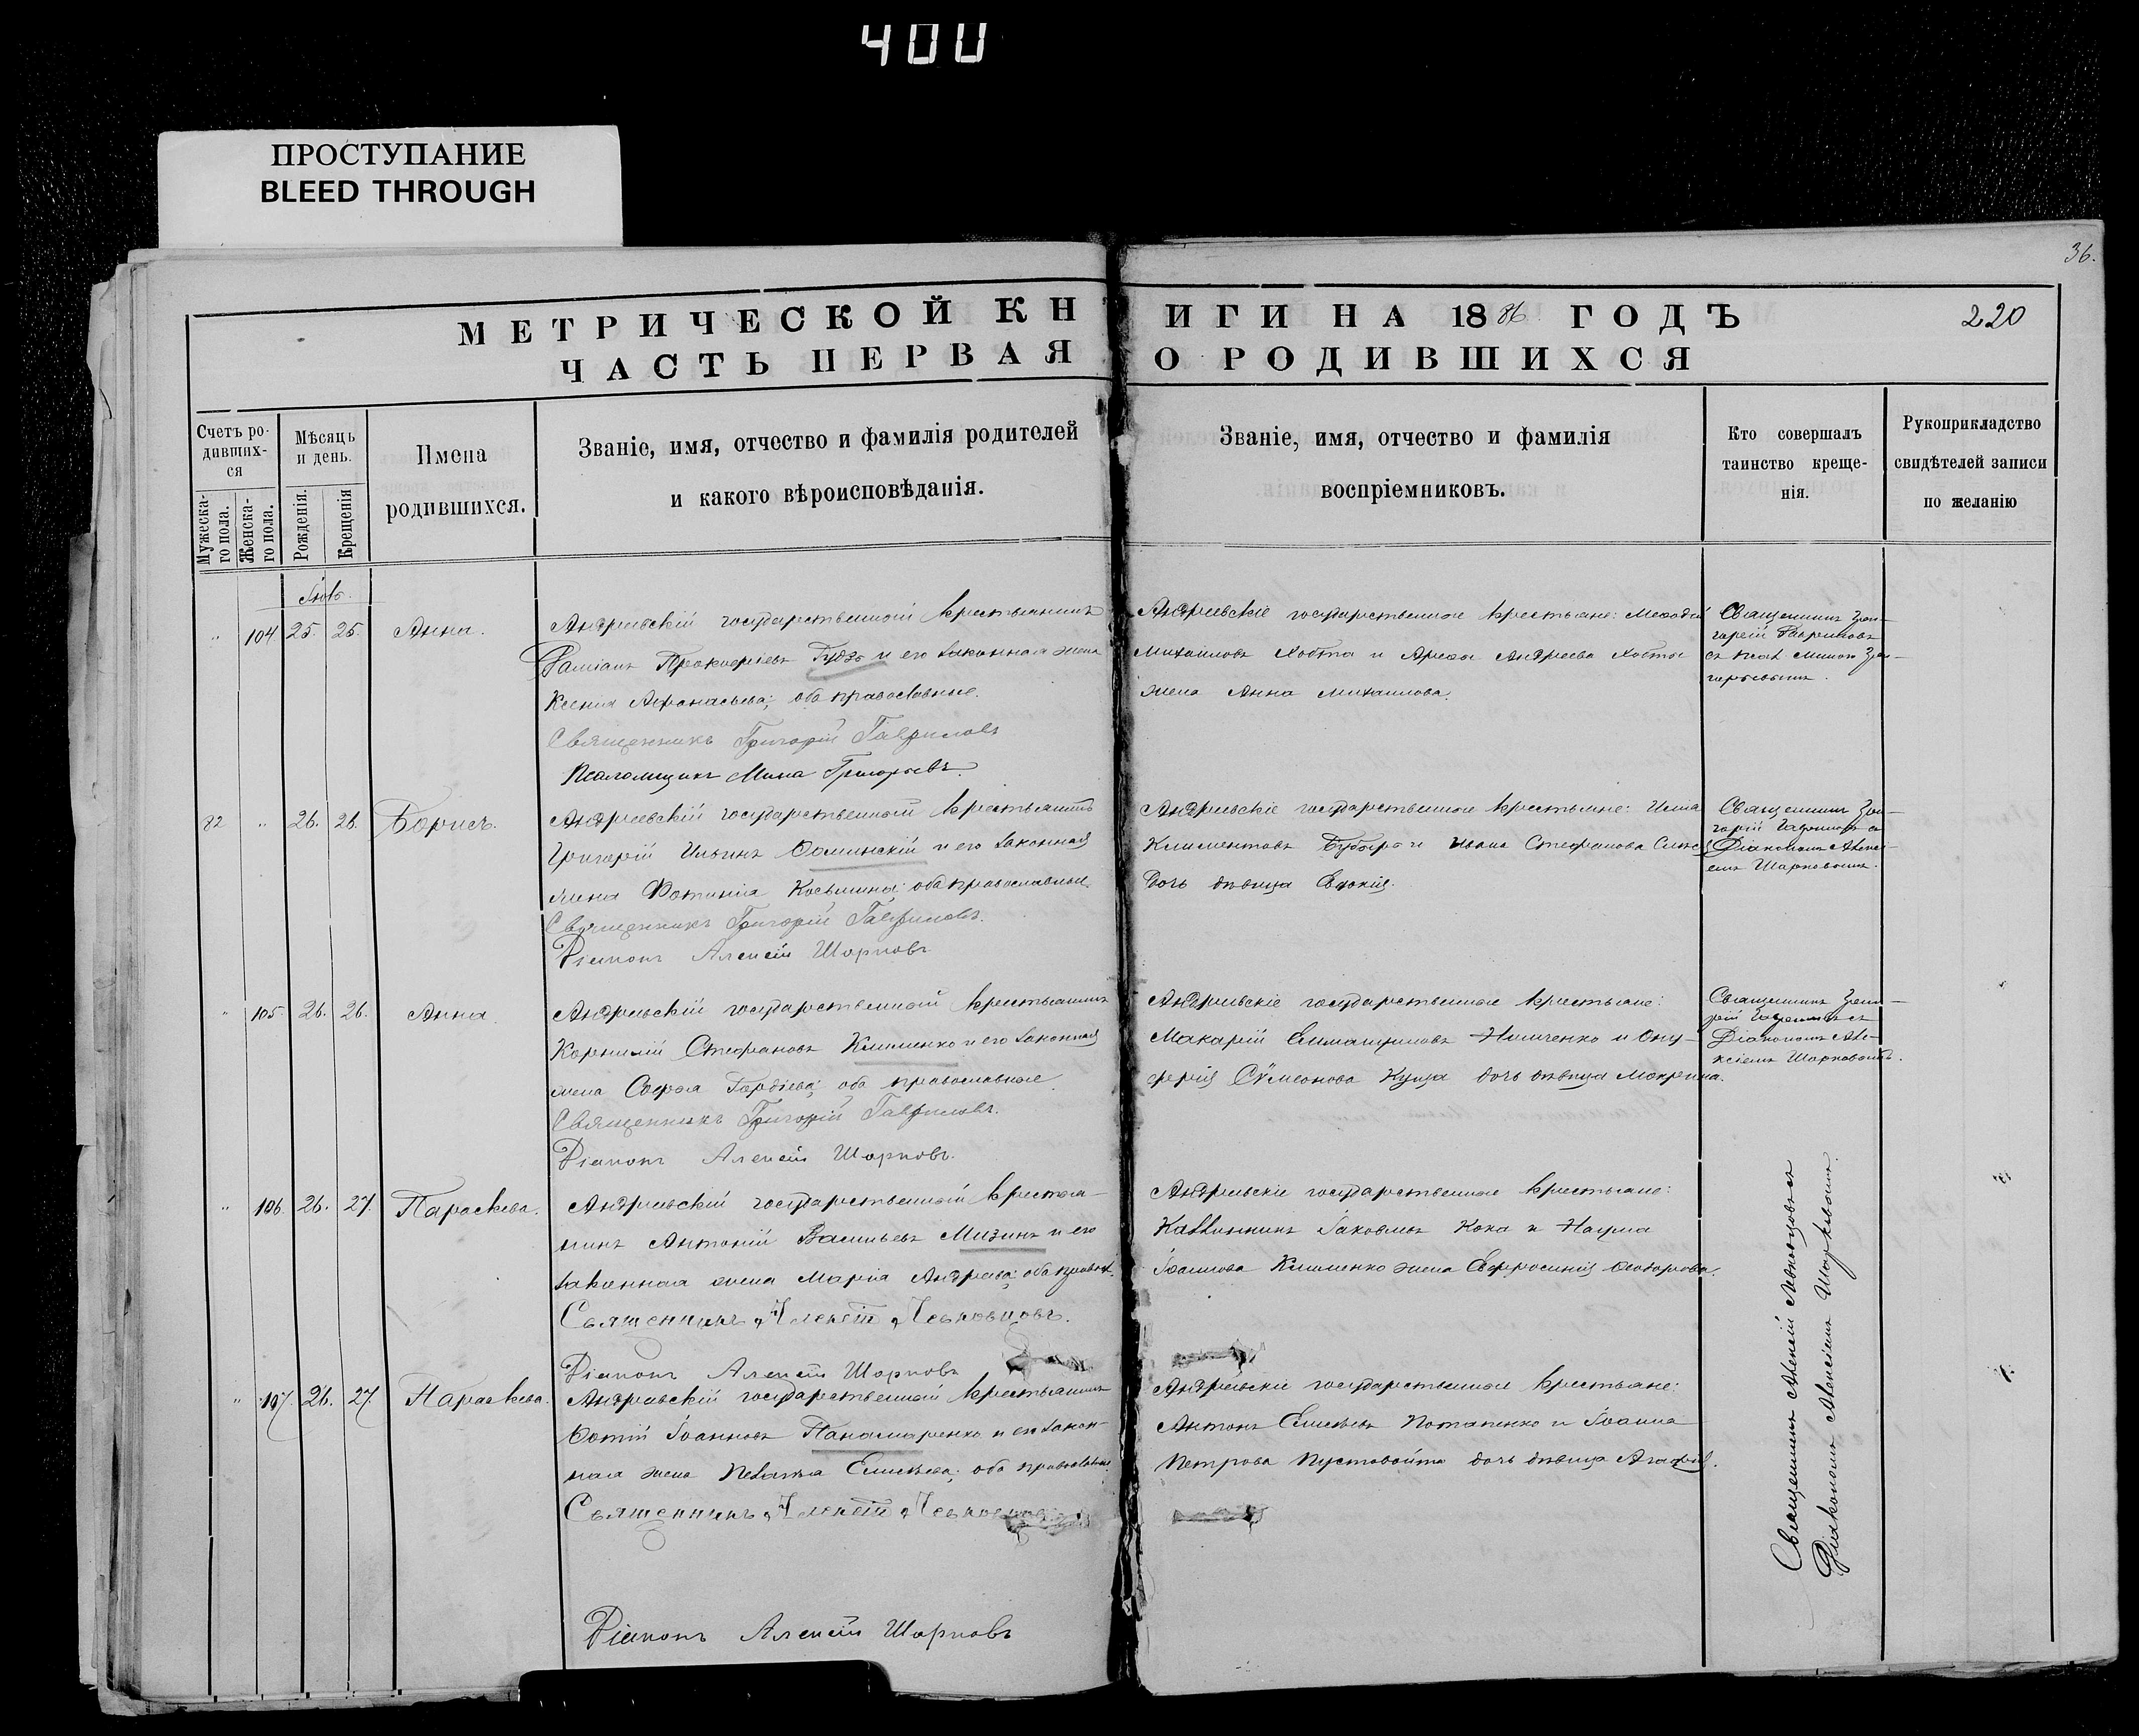 400
ПРОСТУПАНИЕ
BLEED THROUGH
36.
МЕТРИЧЕСКОЙ КНИГИ НА 1886 ГОДЪ
220
ЧАСТЬ ПЕРВАЯ О РОДИВШИХСЯ
Счетъ ро-
дивших-
ся
Мужеска-
го пола.
Женска-
го пола.
Мѣсяцъ
и день.
Рожденія.
Крещенія
Имена
родившихся.
Званіе, имя, отчество и фамилія родителей
и какого вѣроисповѣданія.
Званіе, имя, отчество и фамилія
воспріемниковъ.
Кто совершалъ
таинство креще-
нія.
Рукоприкладство
свидѣтелей записи
по желанію
" 104 25. 25. Анна.
Андреевскій государственный крестьянинъ
Даміанъ Прокофіевъ и его законная жена
Ксенія Аѳанасьева; оба православные.
Священникъ Григорій Гавриловъ
Псаломщикъ Мина Григорьевъ.
Андреевскіе государственные крестьяне: Меѳодій
Михайловъ Хобта и Андреева Хобты
жена Анна Михайлова.
Священникъ Гри-
горій Гавриловъ
съ псал. Миною Гри-
горьевымъ.
82 " 26. 26. Борисъ.
Андреевскій государственный крестьянинъ
Григорій Ильинъ и его законная
жена Фотинія Косьмина; оба православные.
Священникъ Григорій Гавриловъ.
Діаконъ Алексій Шарковъ
Андреевскіе государственные крестьяне:
Климентовъ и Стефанова
дочь дѣвица Евдокія.
Священникъ Гри-
горій Гавриловъ съ
Діакономъ Алексі-
емъ Шарковымъ.
" 105. 26. 26. Анна.
Андреевскій государственный крестьянинъ
Корнилій Стефановъ Клименко и его законная
жена Софія Гордіева; оба православные
Священникъ Григорій Гавриловъ.
Діаконъ Алексій Шарковъ.
Андреевскіе государственные крестьяне:
Макарій Нимченко и Ону-
фрія Сѵмеонова Куща дочь дѣвица Макрина.
Священникъ Григо-
рій Гавриловъ съ
Діакономъ Але-
ксіемъ Шарковымъ.
" 106. 26. 27. Параскева.
Андреевскій государственный крестья-
нинъ Антоній Васильевъ Мизинъ и его
законная жена Марія Андреева; оба правосл.
Священникъ Алексій Левковцовъ.
Діаконъ Алексій Шарковъ
Андреевскіе государственные крестьяне:
Каллиникъ Іаковлевъ Кока и Наума
Іоаннова Клименко жена Евфросинія Ѳеодорова.
" 107. 26. 27. Параскева.
Андреевскій государственный крестьянинъ
Фотій Іоанновъ Панамаренко и его закон-
ная жена Пелагія Елисѣева; оба православные.
Священникъ Алексій Левковцовъ
Діаконъ Алексій Шарковъ
Андреевскіе государственные крестьяне:
Антонъ Елисѣевъ Потапенко и Іоанна
Петрова Пустовойта дочь дѣвица Агафія.
Священникъ Алексій Левковцовъ съ
Діакономъ Алексіемъ Шарковымъ.